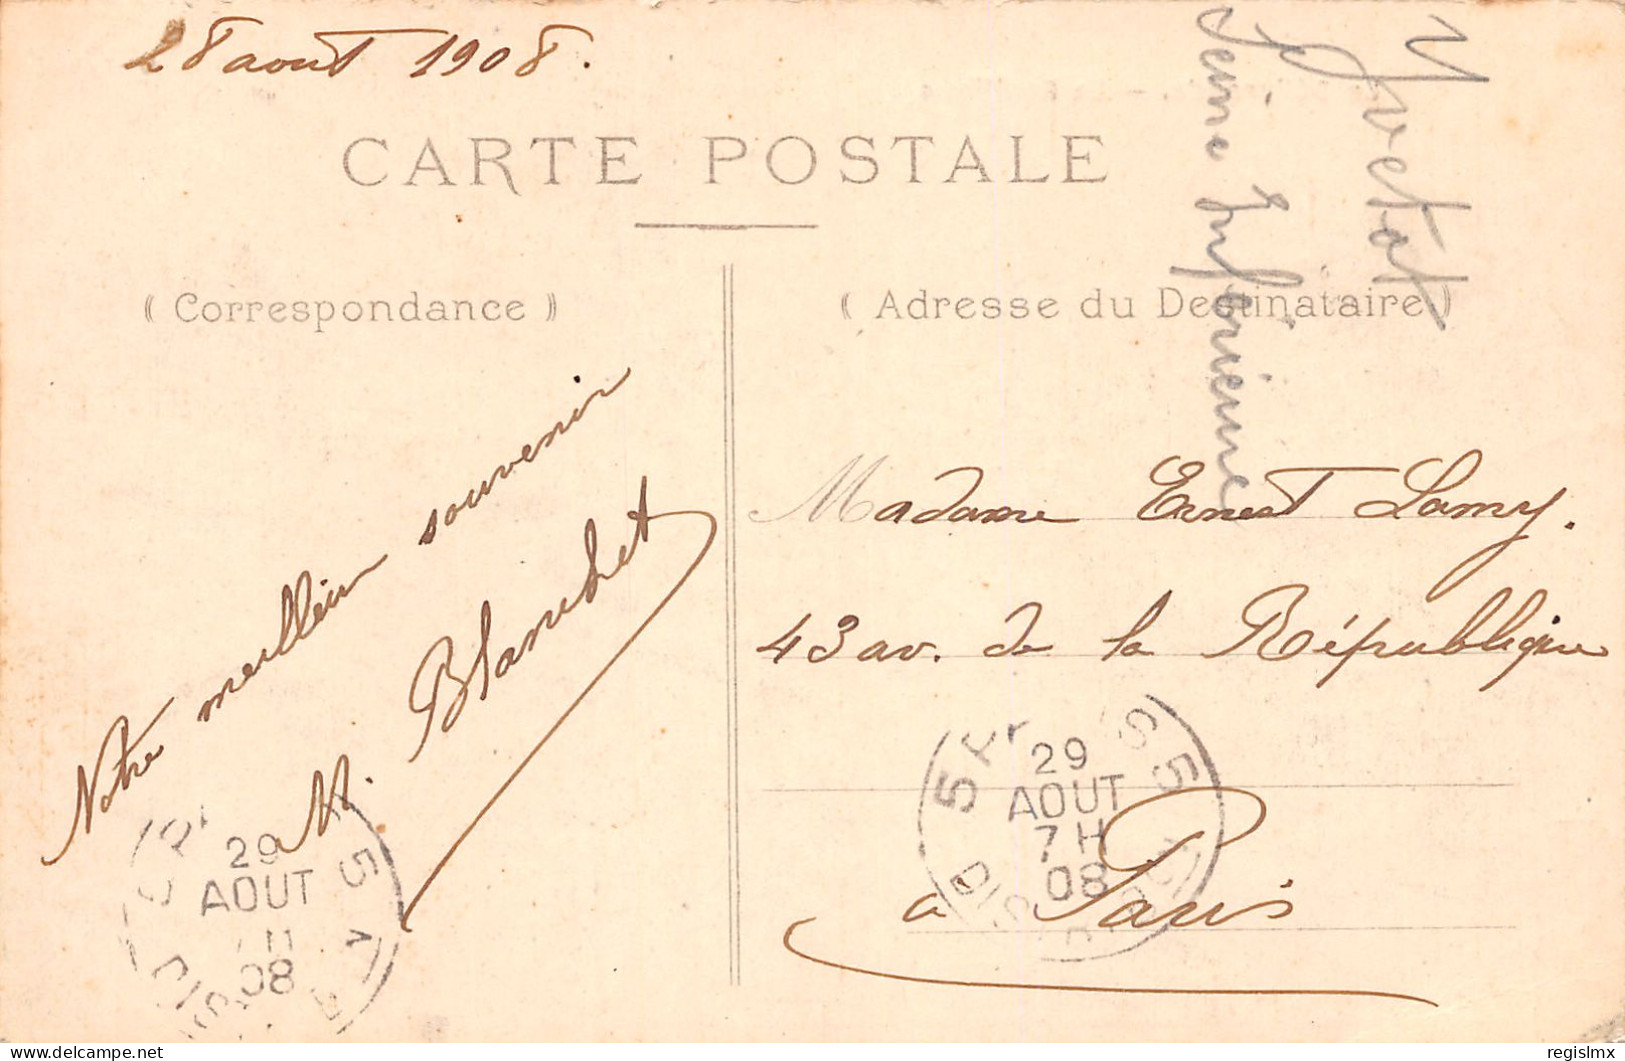 28 aout 1908.
Yvetot
Seine Inférieure
CARTE POSTALE
( Correspondance )
( Adresse du Destinataire )
Notre meilleur souvenir
M. Blanchet
Madame Ernest Lamy.
43 av. de la République
à Paris
29
AOUT
08
5
29
AOUT
7 H
08
5
5
DIS
delcampe.net
regislmx